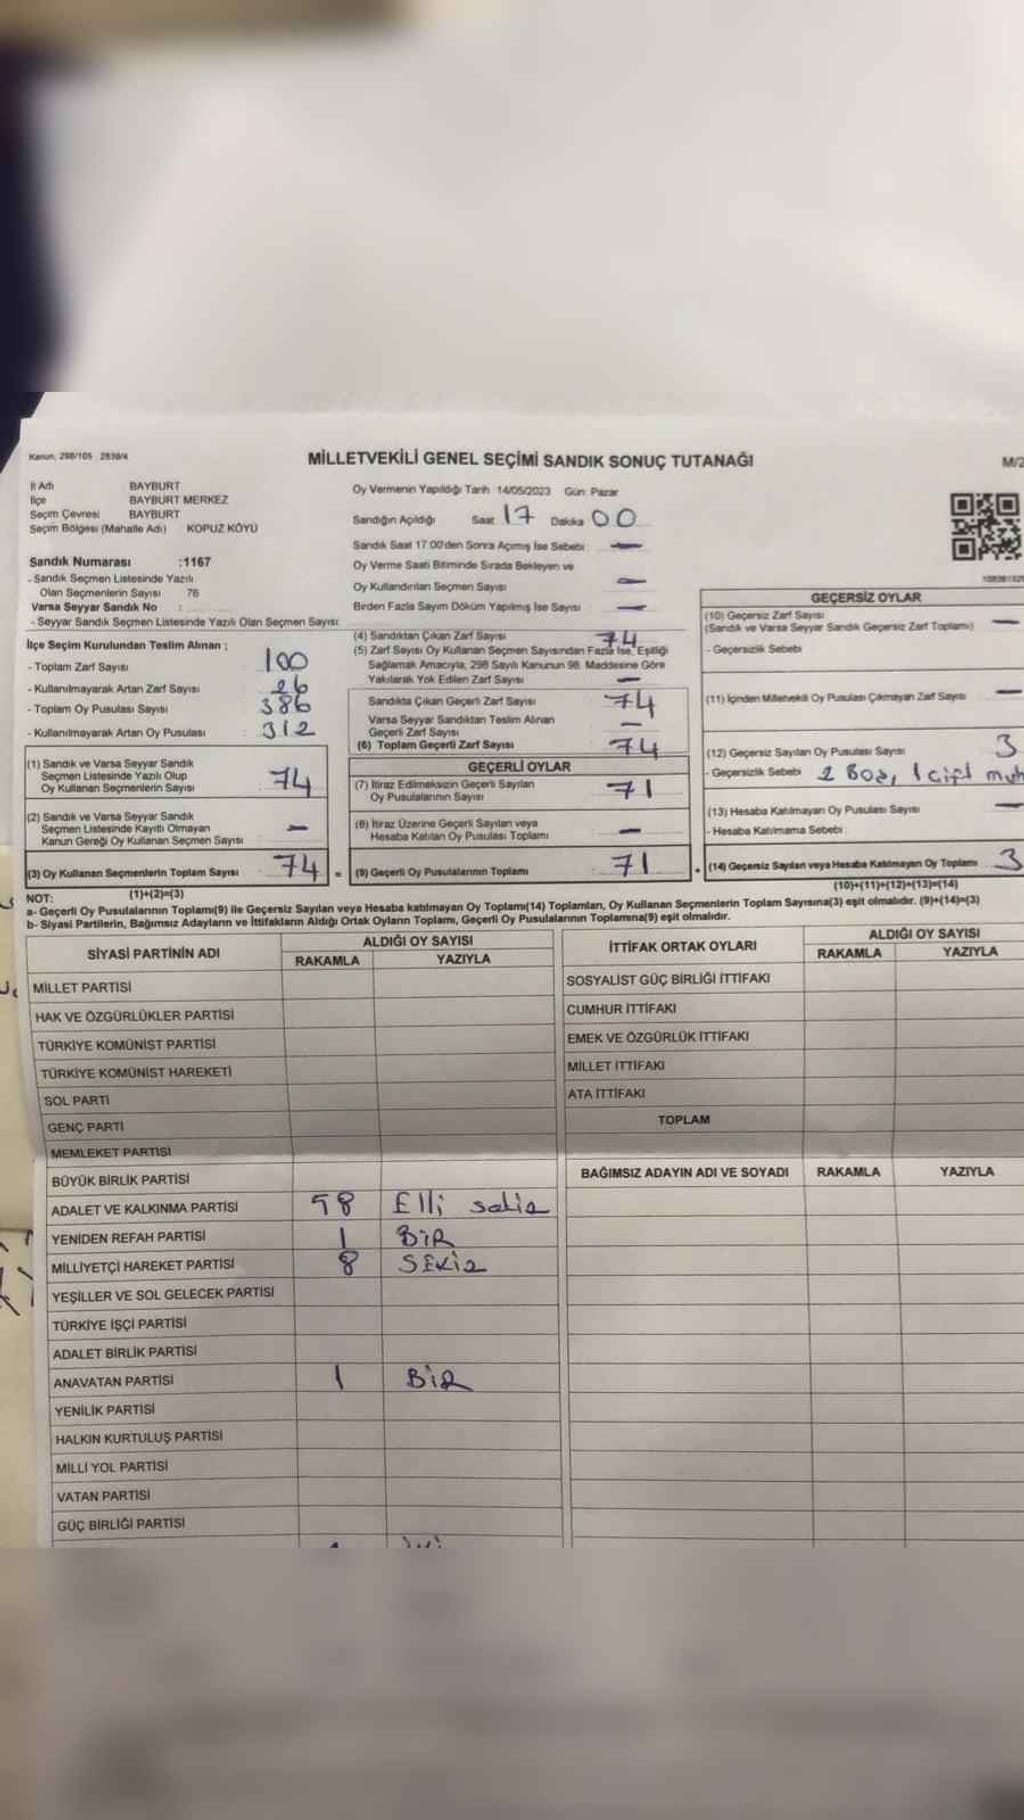 Kanun: 298/105 2839/4
MİLLETVEKİLİ GENEL SEÇİMİ SANDIK SONUÇ TUTANAĞI
M/2
İl Adı BAYBURT
İlçe BAYBURT MERKEZ
Seçim Çevresi BAYBURT
Seçim Bölgesi (Mahalle Adı) KOPUZ KÖYÜ
Oy Vermenin Yapıldığı Tarih 14/05/2023 Gün: Pazar
Sandığın Açıldığı Saat 17 Dakika 00
Sandık Saat 17:00'den Sonra Açımış İse Sebebi —
Oy Verme Saati Bitiminde Sırada Bekleyen ve
Oy Kullandırılan Seçmen Sayısı —
Birden Fazla Sayım Döküm Yapılmış İse Sayısı —
Sandık Numarası :1167
- Sandık Seçmen Listesinde Yazılı
Olan Seçmenlerin Sayısı 76
Varsa Seyyar Sandık No :
- Seyyar Sandık Seçmen Listesinde Yazılı Olan Seçmen Sayısı:
İlçe Seçim Kurulundan Teslim Alınan :
- Toplam Zarf Sayısı 100
- Kullanılmayarak Artan Zarf Sayısı 26
- Toplam Oy Pusulası Sayısı 386
- Kullanılmayarak Artan Oy Pusulası 312
(1) Sandık ve Varsa Seyyar Sandık
Seçmen Listesinde Yazılı Olup
Oy Kullanan Seçmenlerin Sayısı 74
(2) Sandık ve Varsa Seyyar Sandık
Seçmen Listesinde Kayıtlı Olmayan
Kanun Gereği Oy Kullanan Seçmen Sayısı —
(3) Oy Kullanan Seçmenlerin Toplam Sayısı 74 =
(1)+(2)=(3)
(4) Sandıktan Çıkan Zarf Sayısı 74
(5) Zarf Sayısı Oy Kullanan Seçmen Sayısından Fazla İse, Eşitliği
Sağlamak Amacıyla, 298 Sayılı Kanunun 98. Maddesine Göre
Yakılarak Yok Edilen Zarf Sayısı —
Sandıkta Çıkan Geçerli Zarf Sayısı 74
Varsa Seyyar Sandıktan Teslim Alınan
Geçerli Zarf Sayısı —
(6) Toplam Geçerli Zarf Sayısı 74
GEÇERLİ OYLAR
(7) İtiraz Edilmeksizin Geçerli Sayılan
Oy Pusulalarının Sayısı 71
(8) İtiraz Üzerine Geçerli Sayılan veya
Hesaba Katılan Oy Pusulası Toplamı —
(9) Geçerli Oy Pusulalarının Toplamı 71
GEÇERSİZ OYLAR
(10) Geçersiz Zarf Sayısı
(Sandık ve Varsa Seyyar Sandık Geçersiz Zarf Toplamı) —
- Geçersizlik Sebebi
(11) İçinden Milletvekili Oy Pusulası Çıkmayan Zarf Sayısı —
(12) Geçersiz Sayılan Oy Pusulası Sayısı 3
- Geçersizlik Sebebi 2 Boş, 1 çift müh
(13) Hesaba Katılmayan Oy Pusulası Sayısı —
- Hesaba Katılmama Sebebi
(14) Geçersiz Sayılan veya Hesaba Katılmayan Oy Toplamı 3
(10)+(11)+(12)+(13)=(14)
NOT:
a- Geçerli Oy Pusulalarının Toplamı(9) ile Geçersiz Sayılan veya Hesaba katılmayan Oy Toplamı(14) Toplamları, Oy Kullanan Seçmenlerin Toplam Sayısına(3) eşit olmalıdır. (9)+(14)=(3)
b- Siyasi Partilerin, Bağımsız Adayların ve İttifakların Aldığı Ortak Oyların Toplamı, Geçerli Oy Pusulalarının Toplamına(9) eşit olmalıdır.
SİYASİ PARTİNİN ADI
ALDIĞI OY SAYISI
RAKAMLA YAZIYLA
MİLLET PARTİSİ
HAK VE ÖZGÜRLÜKLER PARTİSİ
TÜRKİYE KOMÜNİST PARTİSİ
TÜRKİYE KOMÜNİST HAREKETİ
SOL PARTİ
GENÇ PARTİ
MEMLEKET PARTİSİ
BÜYÜK BİRLİK PARTİSİ
ADALET VE KALKINMA PARTİSİ 58 Elli sekiz
YENİDEN REFAH PARTİSİ 1 BİR
MİLLİYETÇİ HAREKET PARTİSİ 8 SEKİZ
YEŞİLLER VE SOL GELECEK PARTİSİ
TÜRKİYE İŞÇİ PARTİSİ
ADALET BİRLİK PARTİSİ
ANAVATAN PARTİSİ 1 BİR
YENİLİK PARTİSİ
HALKIN KURTULUŞ PARTİSİ
MİLLİ YOL PARTİSİ
VATAN PARTİSİ
GÜÇ BİRLİĞİ PARTİSİ
İTTİFAK ORTAK OYLARI
ALDIĞI OY SAYISI
RAKAMLA YAZIYLA
SOSYALİST GÜÇ BİRLİĞİ İTTİFAKI
CUMHUR İTTİFAKI
EMEK VE ÖZGÜRLÜK İTTİFAKI
MİLLET İTTİFAKI
ATA İTTİFAKI
TOPLAM
BAĞIMSIZ ADAYIN ADI VE SOYADI RAKAMLA YAZIYLA